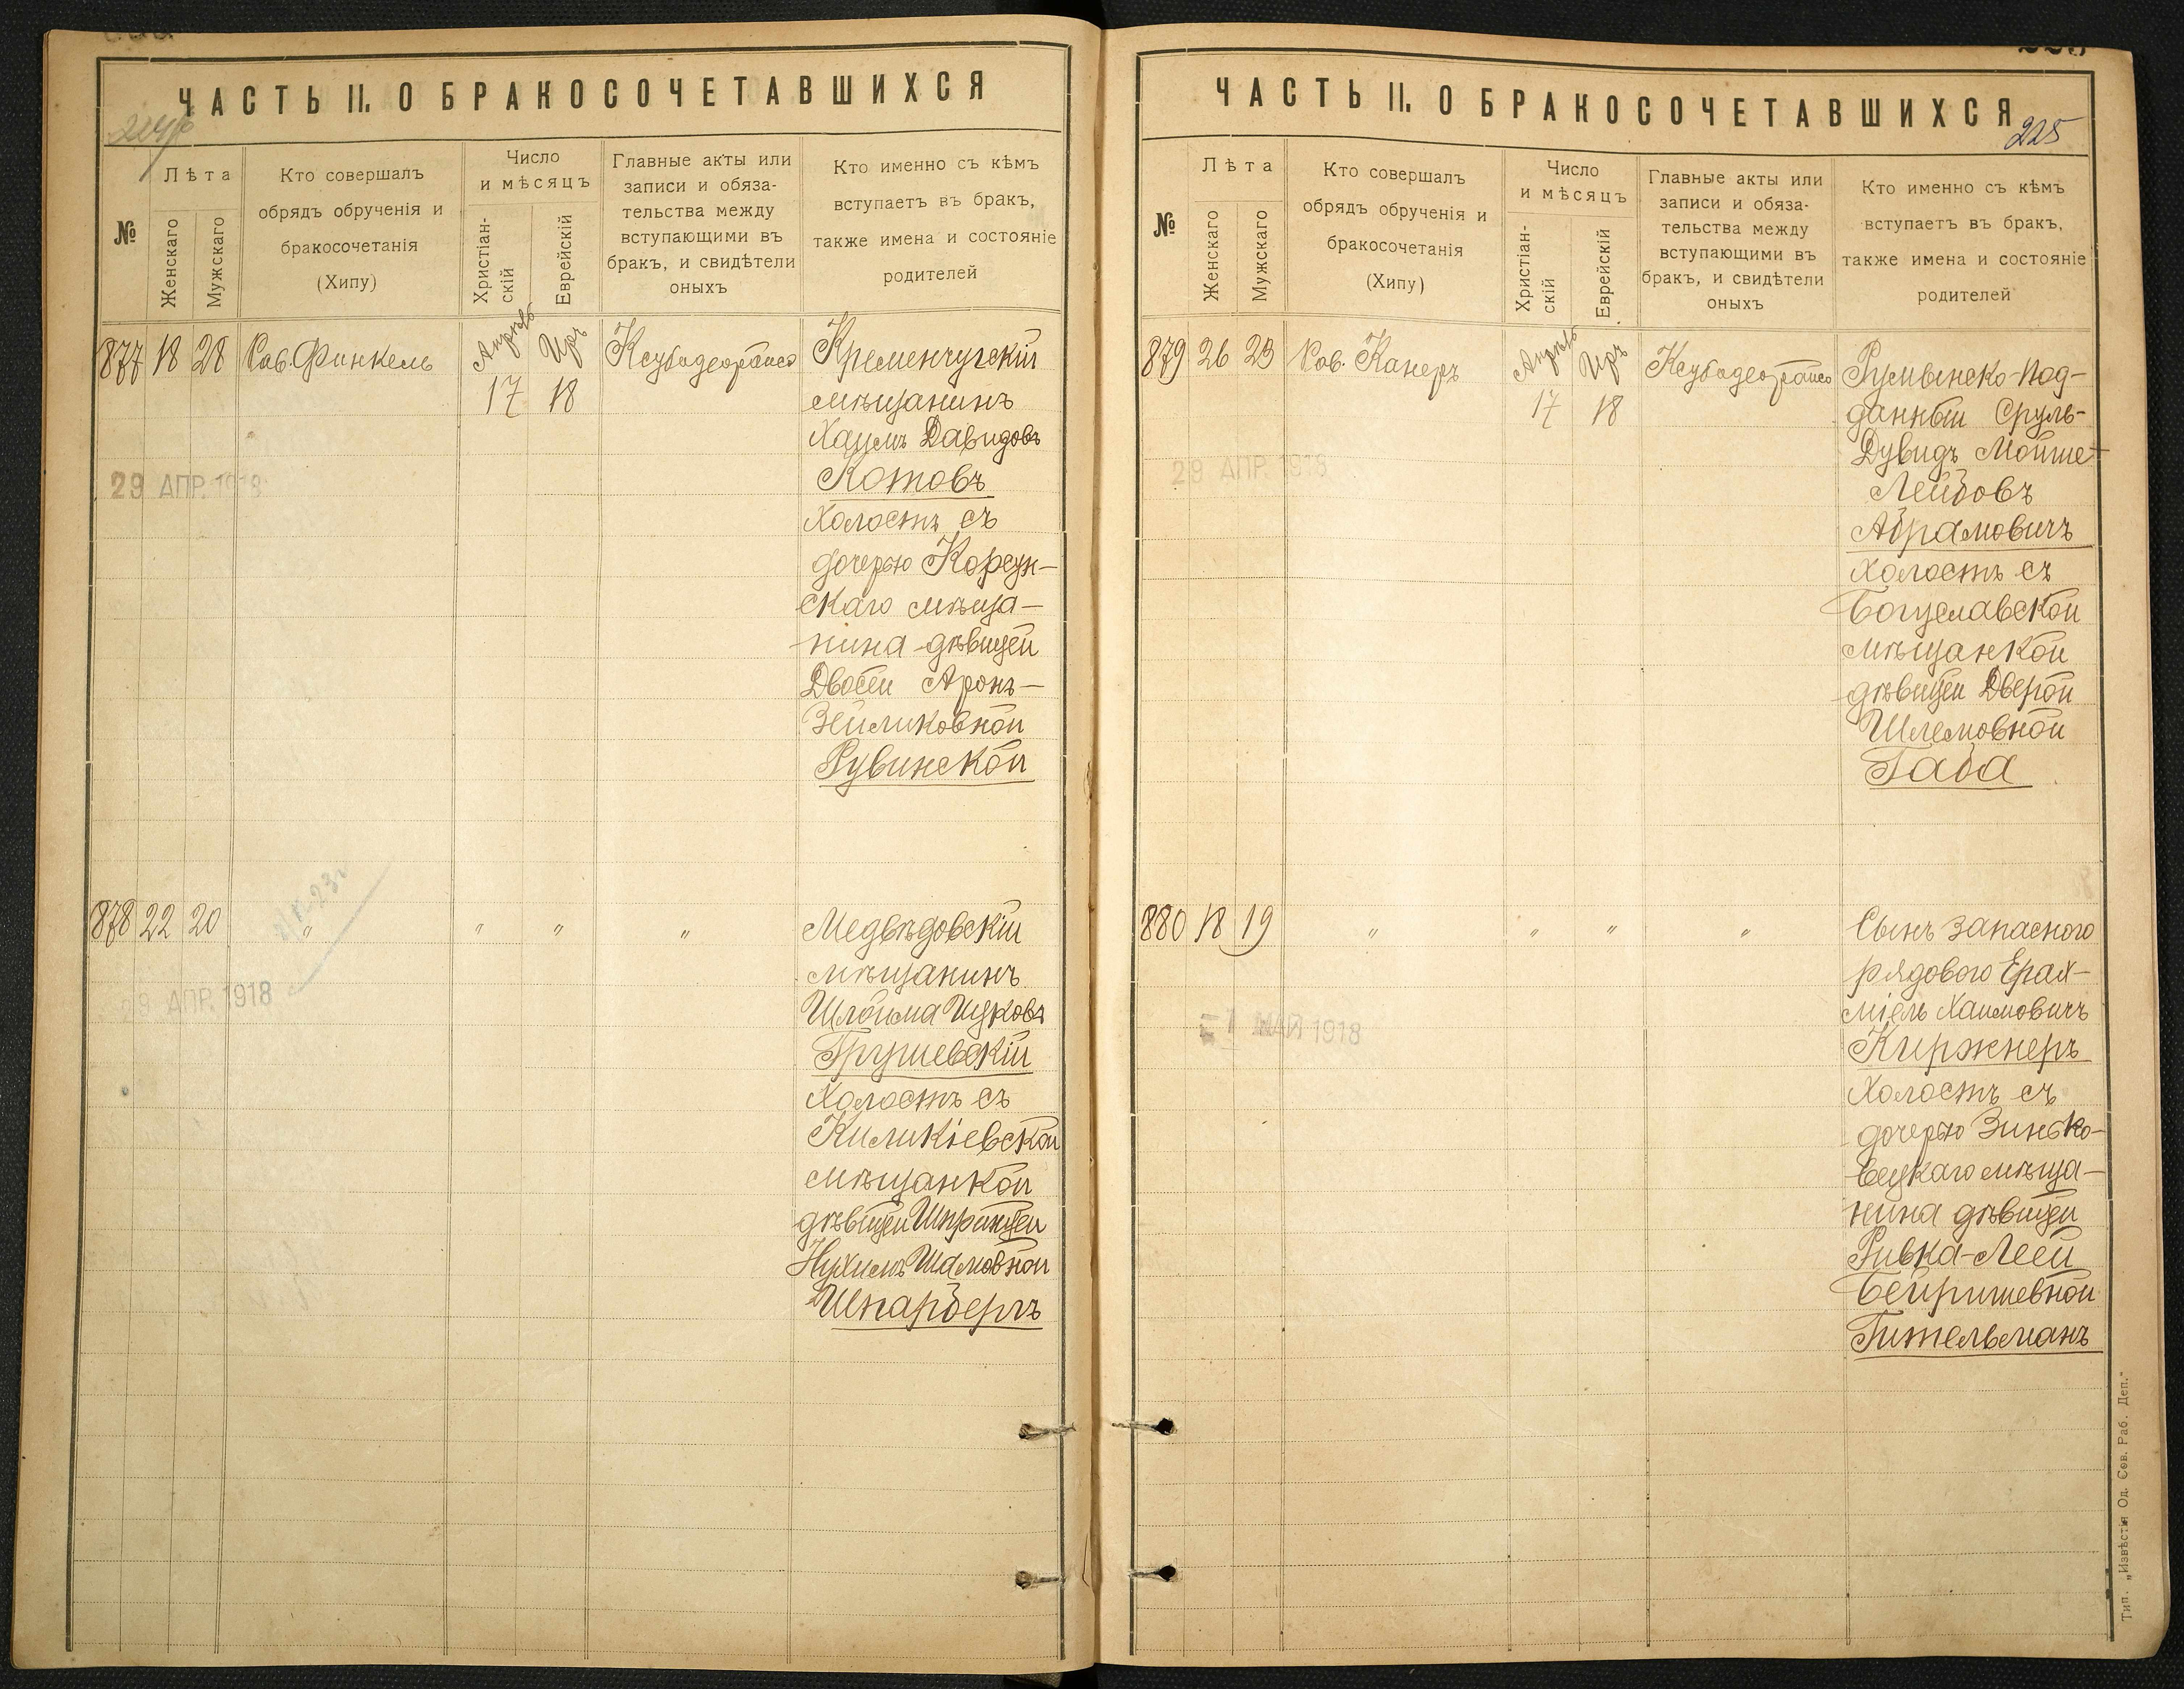 ЧАСТЬ II. О БРАКОСОЧЕТАВШИХСЯ
№
Лѣта
Женскаго
Мужскаго
Кто совершалъ
обрядъ обрученія и
бракосочетанія
(Хипу)
Число
и мѣсяцъ
Христіан-
скій
Еврейскій
Главные акты или
записи и обяза-
тельства между
вступающими въ
бракъ, и свидѣтели
оныхъ
Кто именно съ кѣмъ
вступаетъ въ бракъ,
также имена и состояніе
родителей
877 18 28 Рав. Финкель
Апрѣль
17
Иръ
18
Ксубадеорайсо
Кременчугскій
мѣщанинъ
Хаимъ Давидовъ
Котовъ
холостъ съ
дочерью Корсун-
скаго мѣща-
нина дѣвицей
Двосей Аронъ-
Зейликовной
Рувинской
29 АПР. 1918
878 22 20 " " " "
Медвѣдовскій
мѣщанинъ
Шлойма Ицковъ
Грушевскій
холостъ съ
Киликіевской
мѣщанкой
дѣвицей Шпринцей
Нухимъ Шамовной
Шпарбергъ
29 АПР. 1918
ЧАСТЬ II. О БРАКОСОЧЕТАВШИХСЯ
225
№
Лѣта
Женскаго
Мужскаго
Кто совершалъ
обрядъ обрученія и
бракосочетанія
(Хипу)
Число
и мѣсяцъ
Христіан-
скій
Еврейскій
Главные акты или
записи и обяза-
тельства между
вступающими въ
бракъ, и свидѣтели
оныхъ
Кто именно съ кѣмъ
вступаетъ въ бракъ,
также имена и состояніе
родителей
879 26 23 Рав. Канеръ
Апрѣль
17
Иръ
18
Ксубадеорайсо
Румынско-Под-
данный Сруль-
Дувидъ Мойше-
Лейбовъ
Абрамовичъ
холостъ съ
Богуславской
мѣщанкой
дѣвицей Дверой
Шлемовной
Габа
29 АПР. 1918
880 18 19 " " " "
Сынъ запасного
рядового Ерах-
міель Хаимовичъ
Киржнеръ
холостъ съ
дочерью Зинько-
вецкаго мѣща-
нина дѣвицей
Ривка-Леей
Бейришевной
Гительманъ
МАЙ 1918
Тип. „Извѣстія Од. Сов. Раб. Деп."